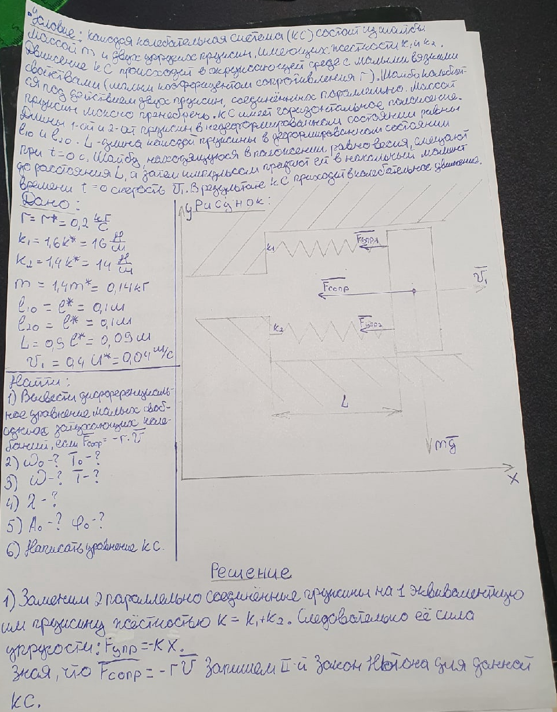 Условие: каждая колебательная система (КС) состоит из шайбы
массой m и двух упругих пружин, имеющих жёсткости k₁ и k₂.
Движение КС происходит в окружающей среде с малыми вязкими
свойствами (малым коэффициентом сопротивления r). Шайба колеблет-
ся под действием двух пружин, соединённых параллельно. Массой
пружин можно пренебречь. КС имеет горизонтальное положение.
Длины 1-ой и 2-ой пружин в недеформированном состоянии равны
l₁₀ и l₂₀. L - длина каждой пружины в деформированном состоянии
при t=0 с. Шайбу, находящуюся в положении равновесия, смещают
до расстояния L, а затем импульсом придают ей в начальный момент
времени t=0 скорость V₁. В результате КС приходит в колебательное движение.
Дано:
r = r* = 0,2 кг/с
k₁ = 1,6k* = 16 Н/м
k₂ = 1,4k* = 14 Н/м
m = 1,4m* = 0,14 кг
l₁₀ = l* = 0,1 м
l₂₀ = l* = 0,1 м
L = 0,9 l* = 0,09 м
V₁ = 0,4 U* = 0,04 м/с
Найти:
1) Вывести дифференциаль-
ное уравнение малых своб-
одных затухающих коле-
баний, если Fсопр = -r·V
2) ω₀-? T₀-?
3) ω-? T-?
4) λ-?
5) A₀-? φ₀-?
6) Написать уравнение КС.
y Рисунок:
k₁ Fупр1
Fсопр V₁
k₂ Fупр2
L
mg
x
Решение
1) Заменим 2 параллельно соединённые пружины на 1 эквивалентную
им пружину жёсткостью k = k₁+k₂. Следовательно её сила
упругости: Fупр = -kx.
Зная, что Fсопр = -rV запишем II-й Закон Ньютона для данной
КС.